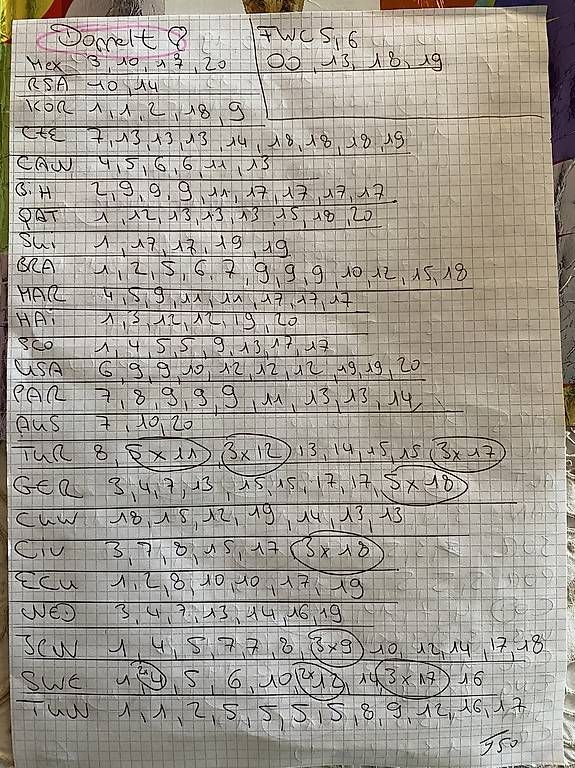 Doppelt 8
FWC 5, 6
00, 13, 18, 19
Mex 3, 10, 17, 20
RSA 10, 14
KOR 1, 1, 2, 18, 9
CZE 7, 13, 13, 13, 14, 18, 18, 18, 19
CAN 4, 5, 6, 6, 11, 13
BiH 2, 9, 9, 9, 11, 17, 17, 17, 17
QAT 1, 12, 13, 13, 13, 15, 18, 20
SUi 1, 17, 17, 19, 19
BRA 1, 2, 5, 6, 7, 9, 9, 9, 10, 12, 15, 18
MAR 4, 5, 9, 11, 11, 17, 17, 17
HAi 1, 3, 12, 12, 19, 20
SCO 1, 4, 5, 5, 9, 13, 17, 17
USA 6, 9, 9, 10, 12, 12, 12, 19, 19, 20
PAR 7, 8, 9, 9, 9, 11, 13, 13, 14,
AUS 7, 10, 20
TUR 8, 5 x 11, 3 x 12, 13, 14, 15, 15, 3 x 17
GER 3, 4, 7, 13, 15, 15, 17, 17, 5 x 18
CUW 18, 15, 12, 19, 14, 13, 13
CIV 3, 7, 8, 15, 17 3 x 18
ECU 1, 2, 8, 10, 10, 17, 19
NED 3, 4, 7, 13, 14, 16, 19
JPN 1, 4, 5, 7, 7, 8, 3 x 9, 10, 12, 14, 17, 18
SWE 1, 2x 4, 5, 6, 10, 2x 12, 14 3 x 17 16
TUN 1, 1, 2, 5, 5, 5, 5, 8, 9, 12, 16, 17